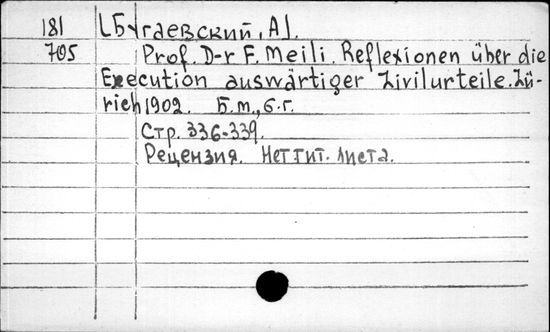 181 [Бугаевский, А].
705 Prof. D-r F. Meili. Reflexionen über die
Execution auswärtiger Zivilurteile. Zü-
rich 1902. Б.м., б.г.
Стр. 336-339.
Рецензия. Нет тит. листа.